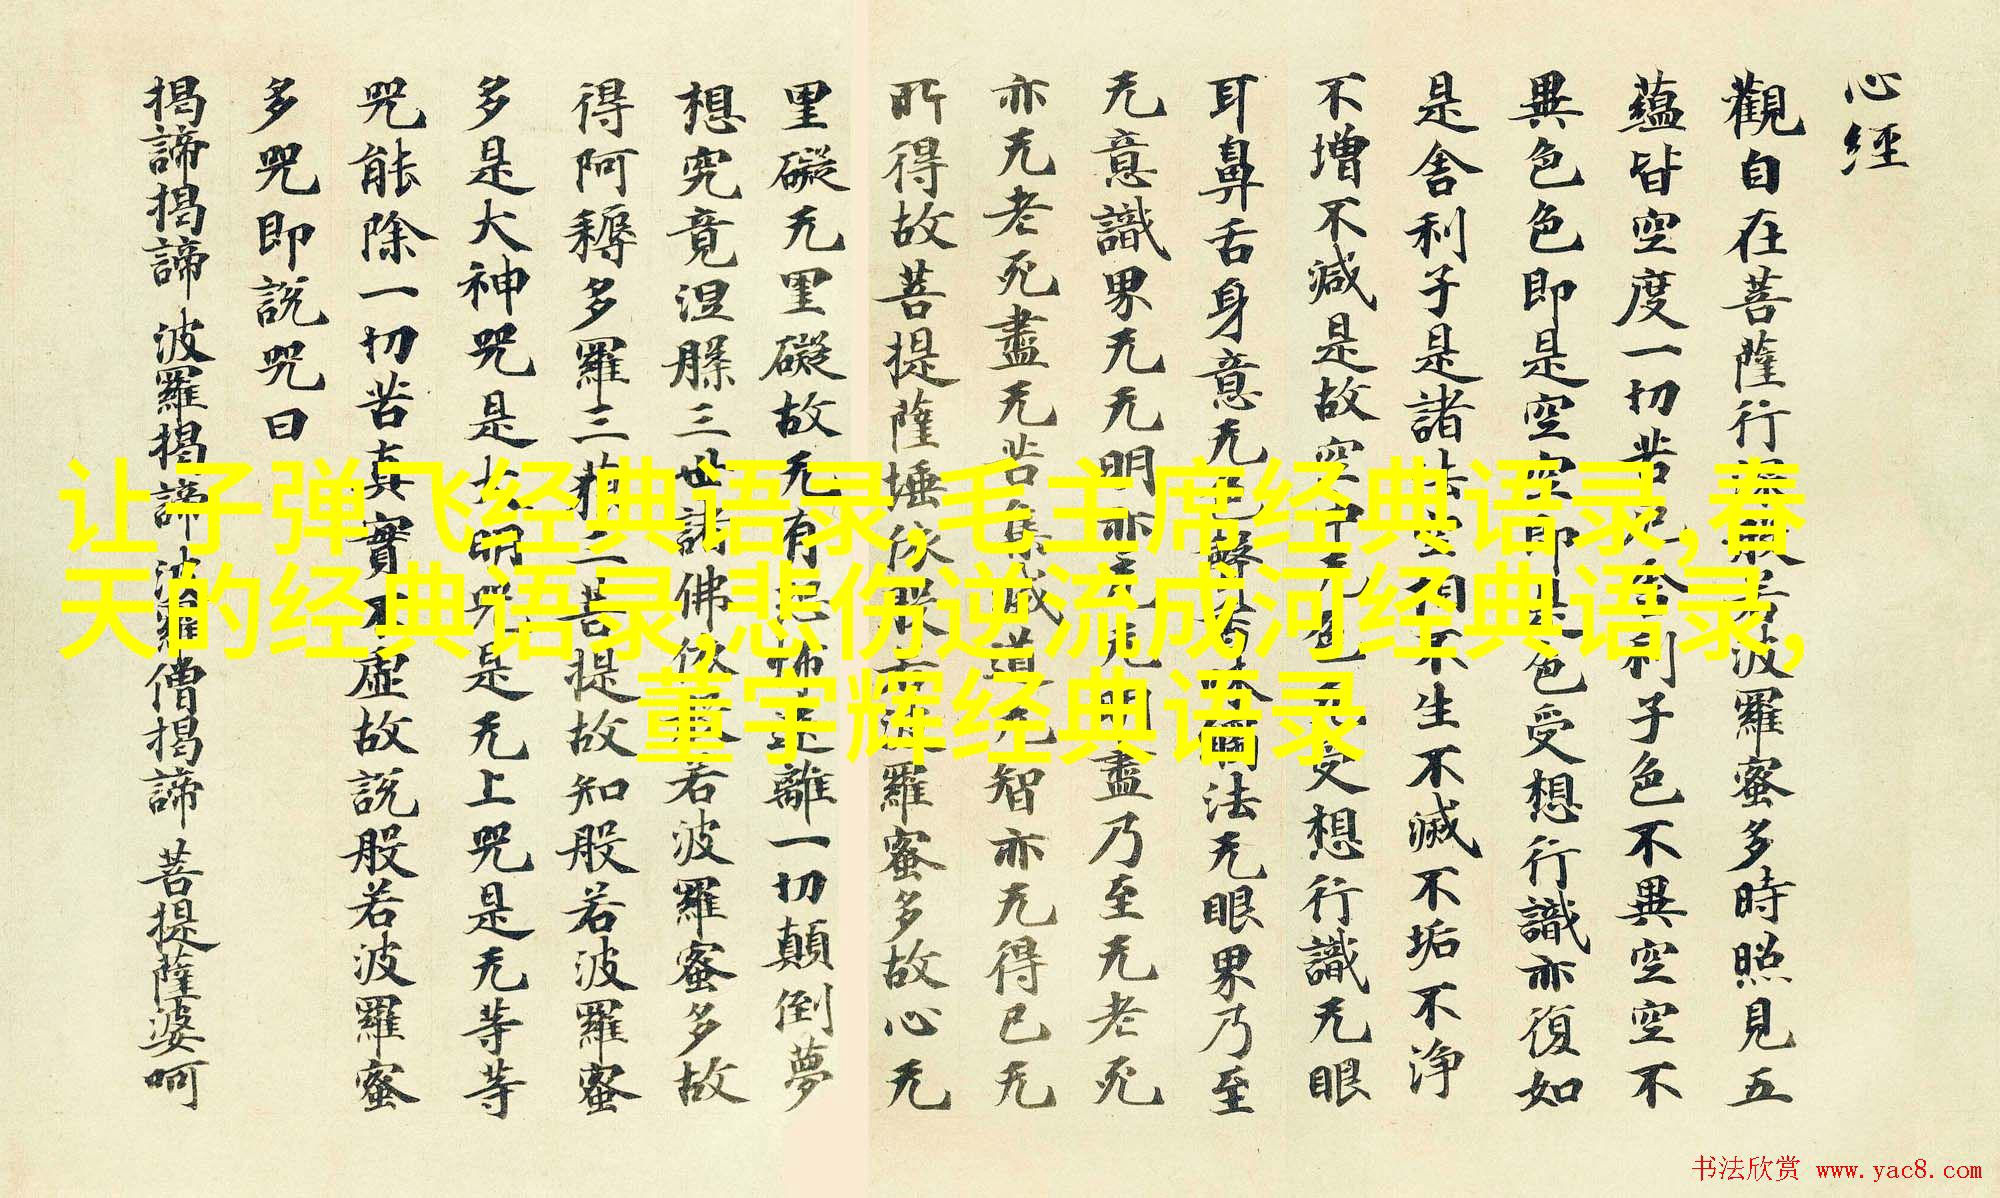 心經
觀自在菩薩行深般若波羅蜜多時照見五
蘊皆空度一切苦厄舍利子色不異空空不
異色色即是空空即是色受想行識亦復如
是舍利子是諸法空相不生不滅不垢不淨
不增不減是故空中无色无受想行識无眼
耳鼻舌身意无色聲香味觸法无眼界乃至
无意識界无无明亦无无明盡乃至无老死
亦无老死盡无苦集滅道无智亦无得已无
所得故菩提薩埵依般若波羅蜜多故心无
罣礙无罣礙故无有恐怖遠離一切顛倒夢
想究竟涅槃三世諸佛依般若波羅蜜多故
得阿耨多羅三藐三菩提故知般若波羅蜜
多是大神咒是大明咒是无上咒是无等等
咒能除一切苦真實不虛故說般若波羅蜜
多咒即說咒曰
揭諦揭諦 波羅揭諦 波羅僧揭諦 菩提薩婆呵
让子弹飞经典语录,毛主席经典语录,春
天的经典语录,悲伤逆流成河经典语录,
董宇辉经典语录
书法欣赏 www.yac8.com